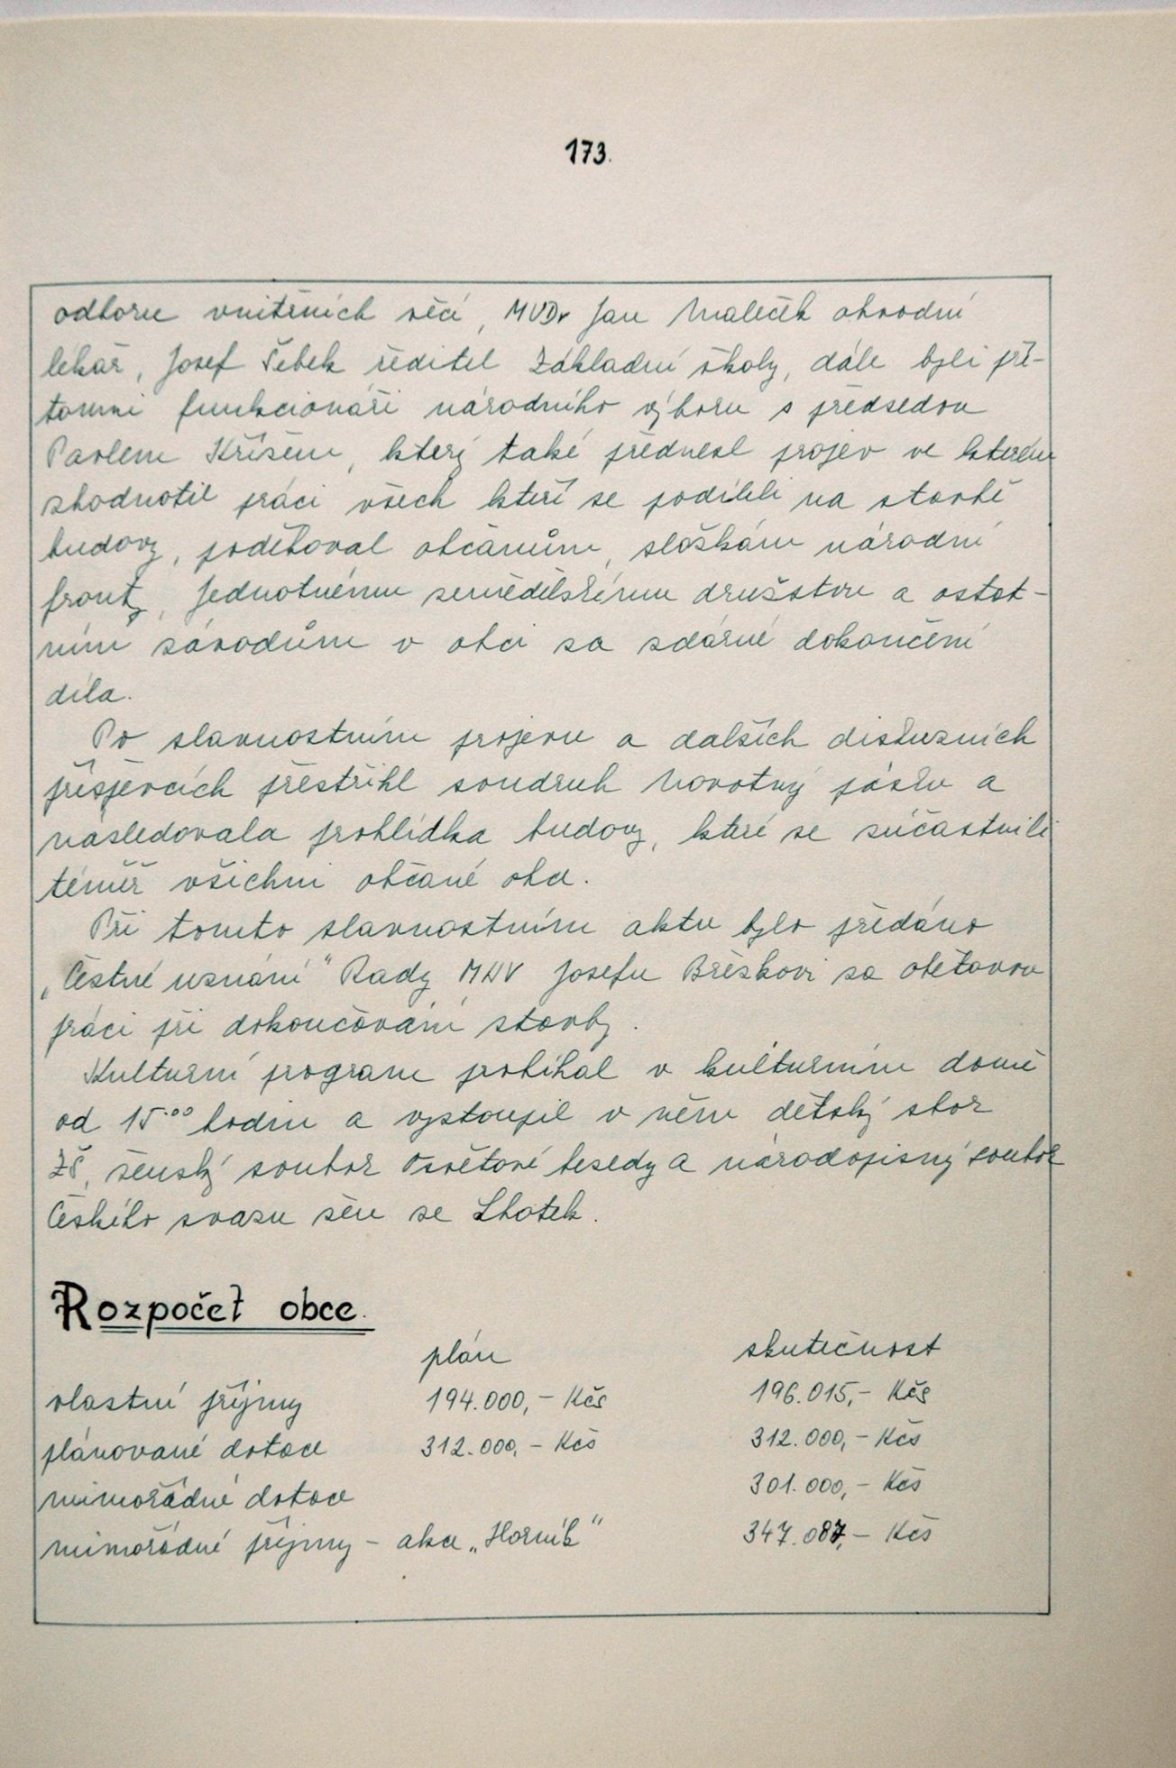 173.
odboru vnitřních věcí, MVDr Jan Maleček obvodní
lékař, Josef Šebek ředitel Základní školy, dále byli pří-
tomni funkcionáři národního výboru s předsedou
Pavlem Křížem, který také přednesl projev ve kterém
zhodnotil práci všech kteří se podíleli na stavbě
budovy, poděkoval občanům, složkám národní
fronty, Jednotnému zemědělskému družstvu a ostat-
ním závodům v obci za zdárné dokončení
díla.
Po slavnostním projevu a dalších diskuzních
příspěvcích přestřihl soudruh Novotný pásku a
následovala prohlídka budovy, které se súčastnili
téměř všichni občané obce.
Při tomto slavnostním aktu bylo předáno
„Čestné uznání" Rady MNV Josefu Březkovi za obětavou
práci při dokončování stavby.
Kulturní program probíhal v kulturním domě
od 15.00 hodin a vystoupil v něm dětský sbor
ZŠ, ženský soubor Osvětové besedy a národopisný soubor
Českého svazu žen se Lhotek.
Rozpočet obce.
plán skutečnost
vlastní příjmy 194.000,- Kčs 196.015,- Kčs
plánované dotace 312.000,- Kčs 312.000,- Kčs
mimořádné dotace 301.000,- Kčs
mimořádné příjmy - akce „Horník" 347.087,- Kčs